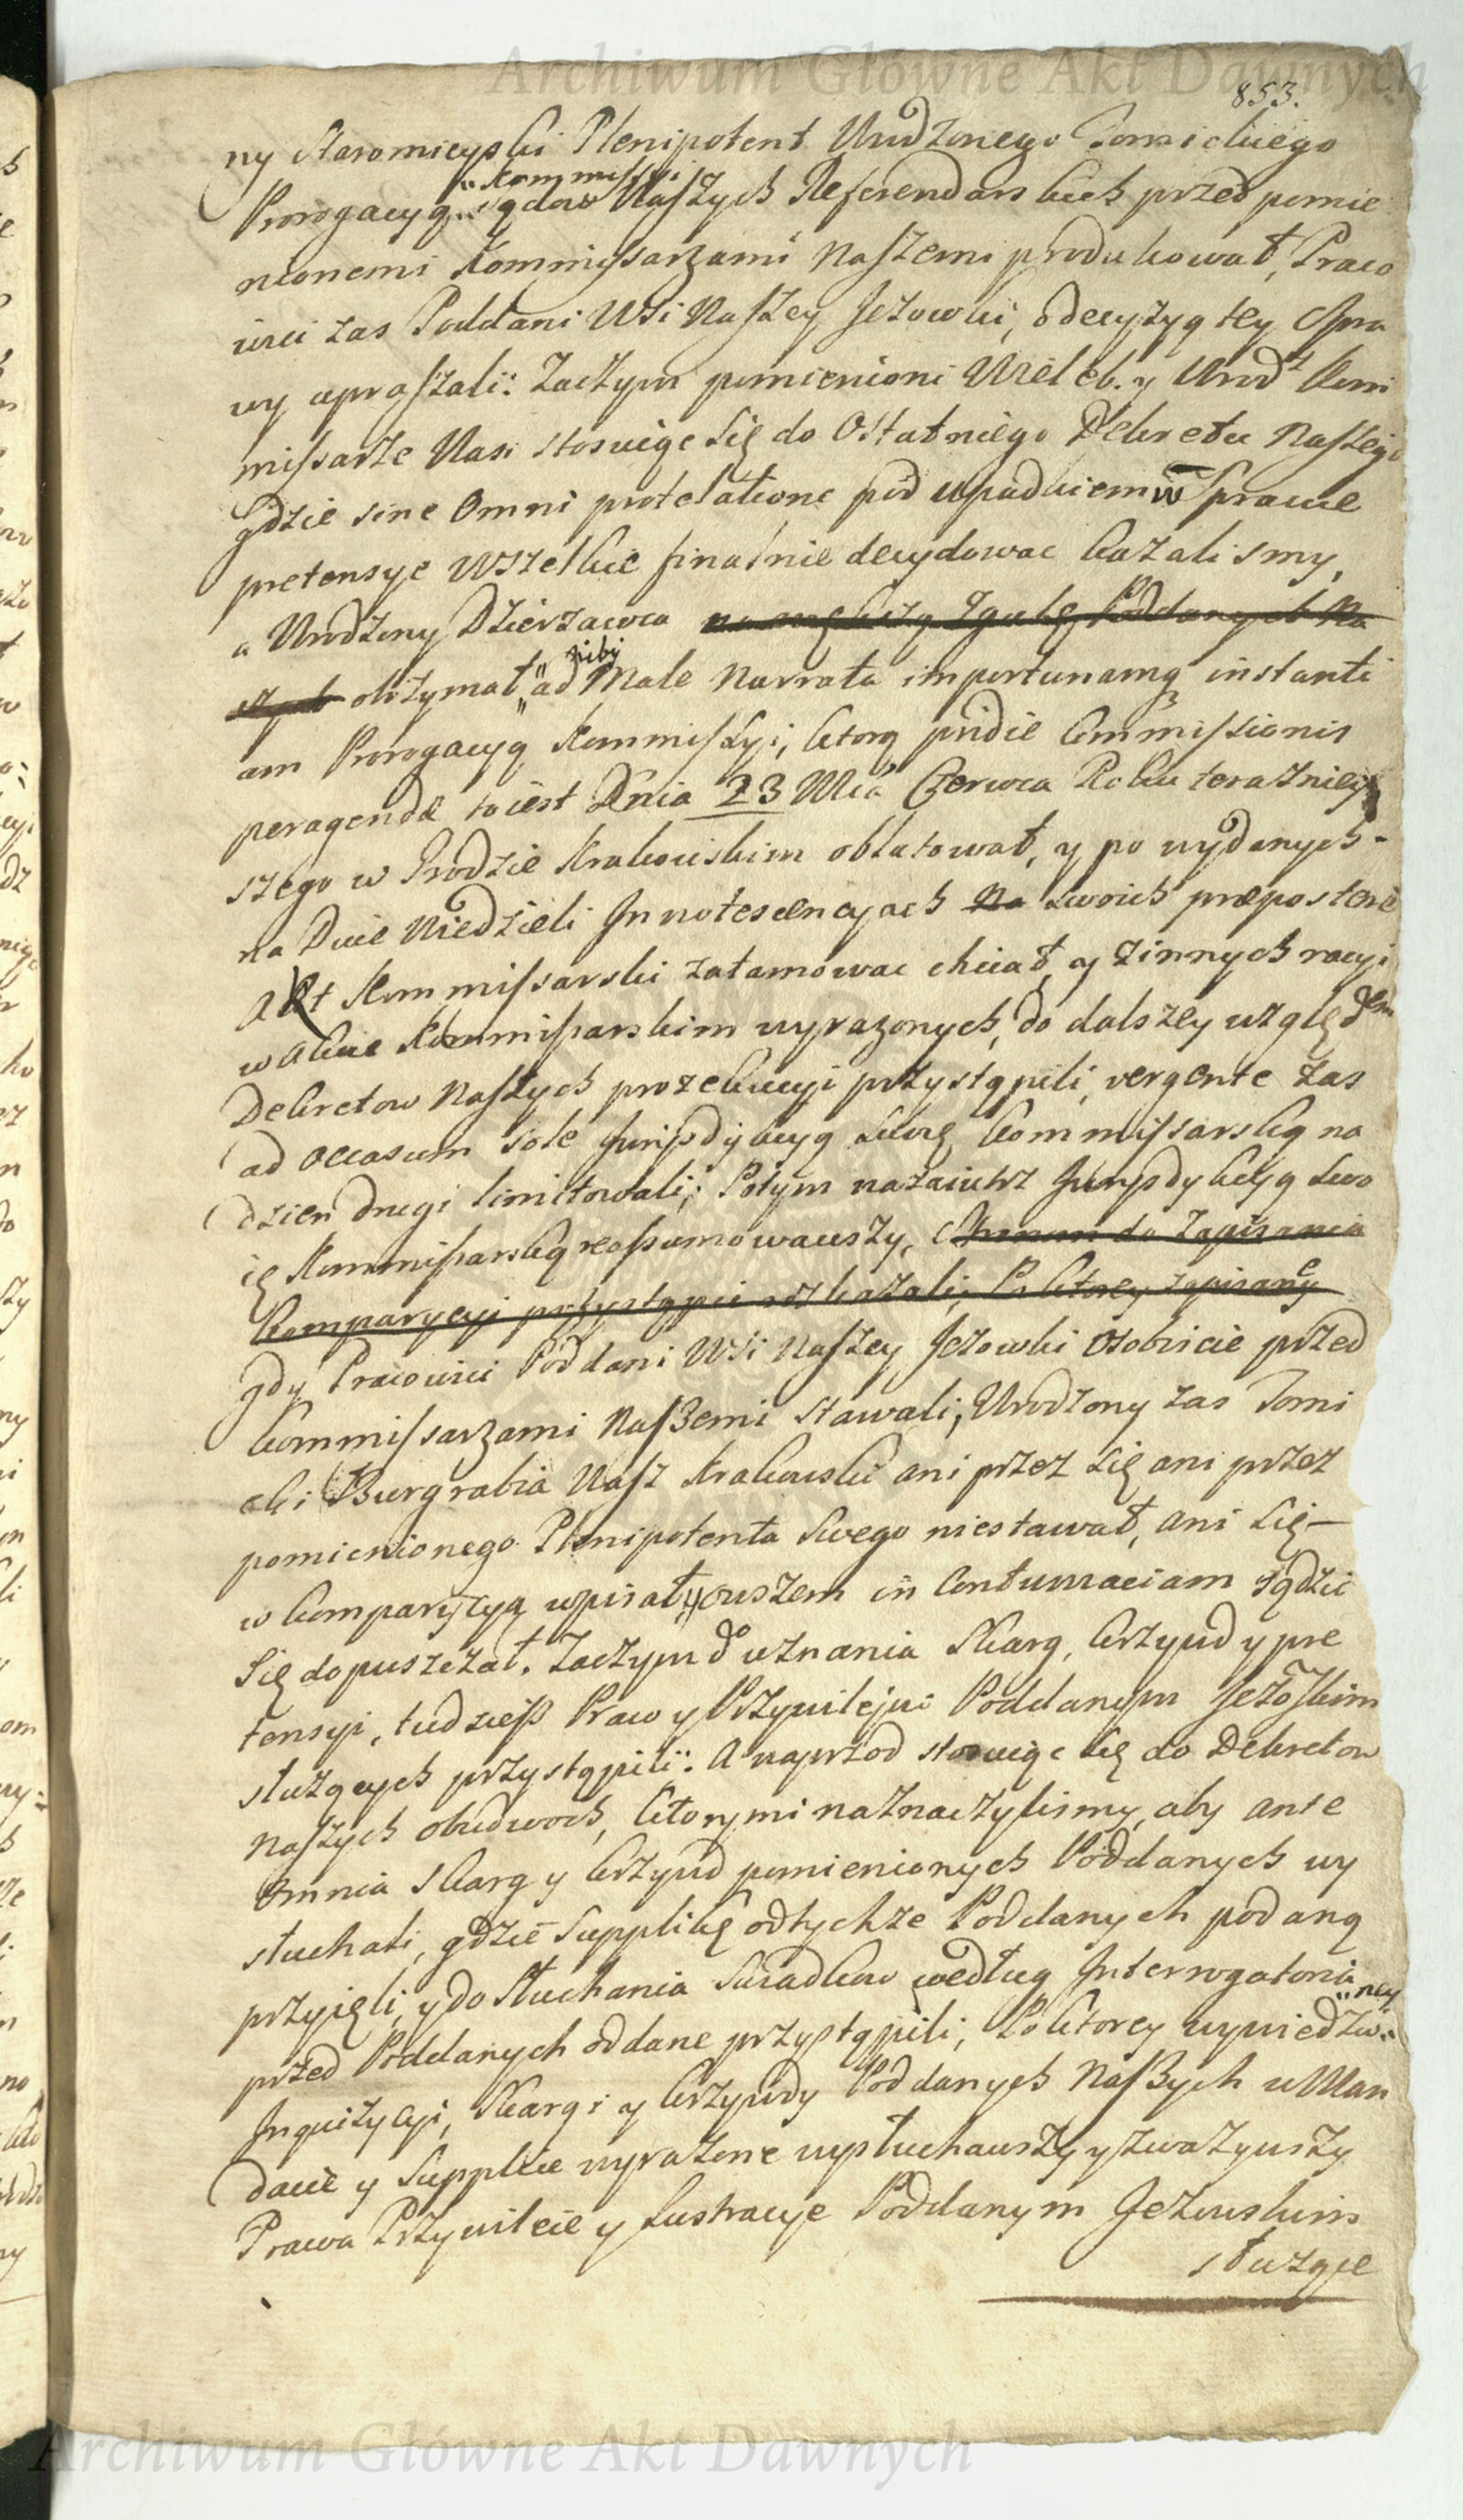 Archiwum Główne Akt Dawnych
853.
ny Staromieyski Plenipotent Urodzonego Tomickiego
Kommissyi
Prorogacyą Sądow Naszych Referendarskich przed pomie
nionemi Kommissarzami Naszemi produkował, Praco
wici zas Poddani Wsi Naszey Jezowki, o decyzyą tey Spra
wy upraszali: Zaczym pomienioni Wieleb. y Urodz Kom
missarze Nasi stosuiąc się do Ostatniego Dekretu Naszego
gdzie sine Omni protelatione pod upadkiem w Sprawie
pretensye wszelkie finalnie decydowac kazalismy,
a Urodzony Dzierzawca na większą zgubę Poddanych Na
szych otrzymał niby ad Male Narrata importunamq instanti
am Prorogacyą Kommissyi, ktorą pridie Commissionis
peragendæ to iest Dnia 23 Mca Czerwca Roku terazniey
szego w Grodzie Krakowskim oblatował, y po wydanych
na Dwie Niedzieli Innotescencyach Na Swoich præpostere
Akt Kommissarski zatamowac chciał, y z innych racyi
w Akcie Kommissarskim wyrazonych, do dalszey względem
Dekretow Naszych prozekucyi przystąpili, vergente zas
ad occasum sole Jurisdykcyą Swoię Kommissarską na
dzien drugi limitowali; Potym nazaiutrz Jurysdykcyą Swo
ię Kommissarską reassumowawszy, Stronom do zapisania
Komparycyi przystąpic rozkazali, Po ktorey zapisaney
gdy Pracowici Poddani Wsi Naszey Jezowki Osobiscie przed
Kommissarzami Naszemi Stawali, Urodzony zas Tomi
cki Burgrabia Nasz Krakowski ani przez się ani przez
pomienionego Plenipotenta Swego niestawał, ani się
w Komparycyą wpisał, owszem in Contumaciam sądzic
się dopuszczał. Zaczym do uznania Skarg, krzywd y pre
tensyi, tudziesz Praw y Przywilejow Poddanym Jezoskim
słuzących przystąpili: A naprzod stosuiąc się do Dekretow
Naszych obudwoch, ktorymi naznaczylismy, aby ante
Omnia Skarg y krzywd pomienionych Poddanych wy
słuchali, gdzie Supplikę od tychze Poddanych podaną
przyięli, y do Słuchania Swiadkow według Interrogatoria
przed Poddanych oddane przystąpili, Po ktorey wywiedzio
ney
Inquizycyi, Skargi y krzywdy Poddanych Naszych w Man
dacie y Supplice wyrazone wysłuchawszy y zwazywszy
Prawa Przywileie y Lustracye Poddanym Jezowskim
słuzące
Archiwum Główne Akt Dawnych